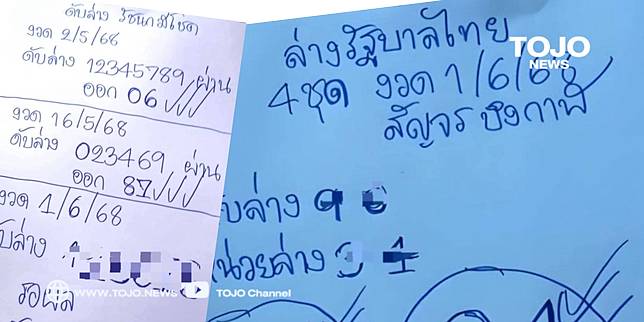 ดับล่าง รัชนก มีโชค
งวด 2/5/68
ดับล่าง 12345789 ผ่าน
ออก 06
งวด 16/5/68
ดับล่าง 023469 ผ่าน
ออก 87
งวด 1/6/68
ดับล่าง
รอผล
ล่างรัฐบาลไทย
4 ชุด งวด 1/6/68
สัญจร บึงกาฬ
TOJO
NEWS
ับล่าง 9
หน่วยล่าง
WWW.TOJO.NEWS
TOJO Channel